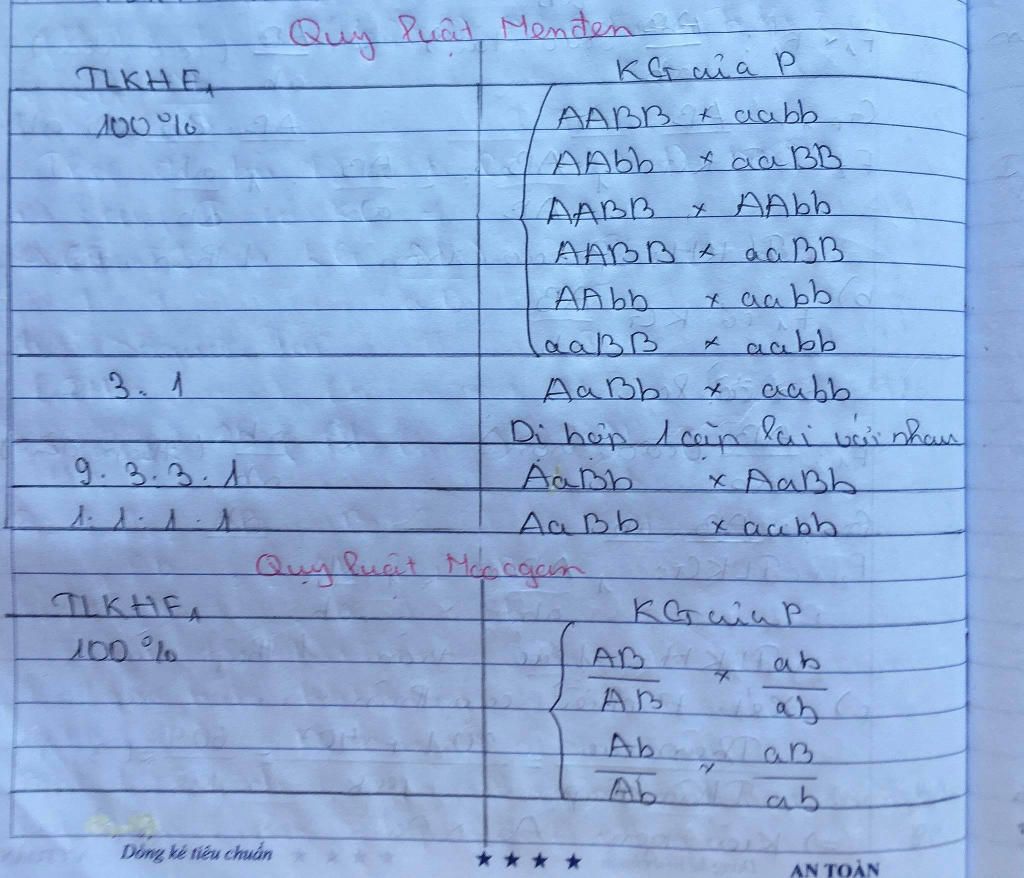 Quy luật Menđen
TLKHF₁ KG của P
100% AABB × aabb
AAbb × aaBB
AABB × AAbb
AABB × aaBB
AAbb × aabb
aaBB × aabb
3. 1 AaBb × aabb
Dị hợp 1 cặp lai với nhau
9. 3. 3. 1 AaBb × AaBb
1. 1. 1. 1 AaBb × aabb
Quy luật Moocgan
TLKHF₁ KG của P
100% AB/AB × ab/ab
Ab/Ab × aB/ab
Dòng kẻ tiêu chuẩn ★ ★ ★ ★ AN TOÀN